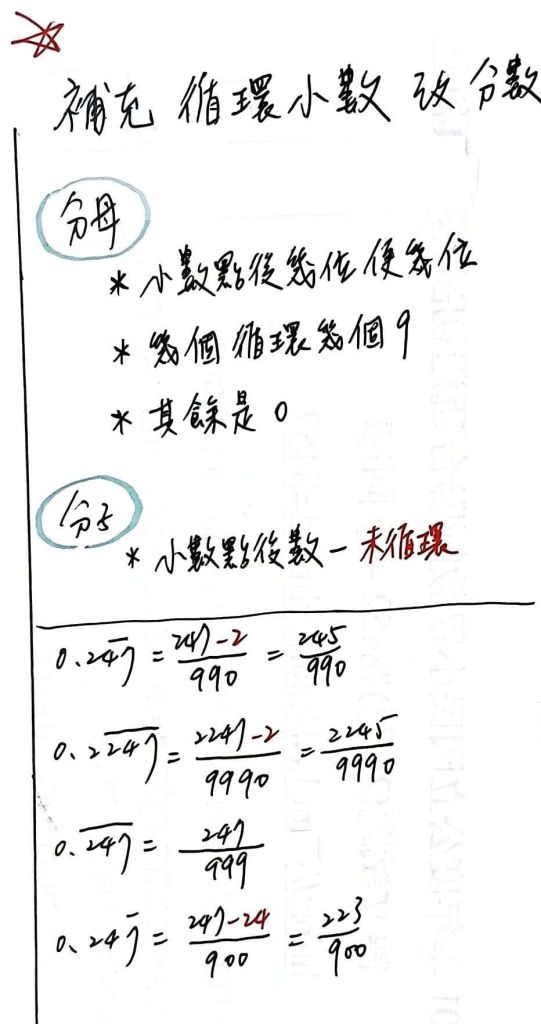 補充 循環小數 改 分數
分母
* 小數點後幾位便幾位
* 幾個循環幾個9
* 其餘是0
分子
* 小數點後數－未循環
0.24̅7̅ = 247-2/990 = 245/990
0.22̅4̅7̅ = 2247-2/9990 = 2245/9990
0.2̅4̅7̅ = 247/999
0.247̅ = 247-24/900 = 223/900